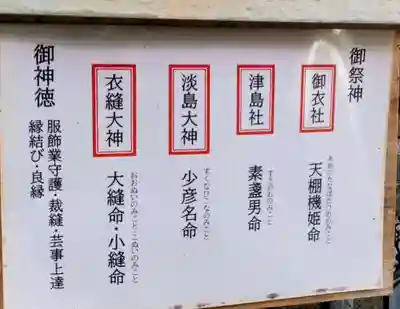 御祭神
御衣社
天棚機姫命
あめのたなばたつめのみこと
津島社
素盞男命
すさのおのみこと
淡島大神
少彦名命
すくなひこなのみこと
衣縫大神
大縫命・小縫命
おおぬいのみこと・こぬいのみこと
御神徳
服飾業守護・裁縫・芸事上達
縁結び・良縁